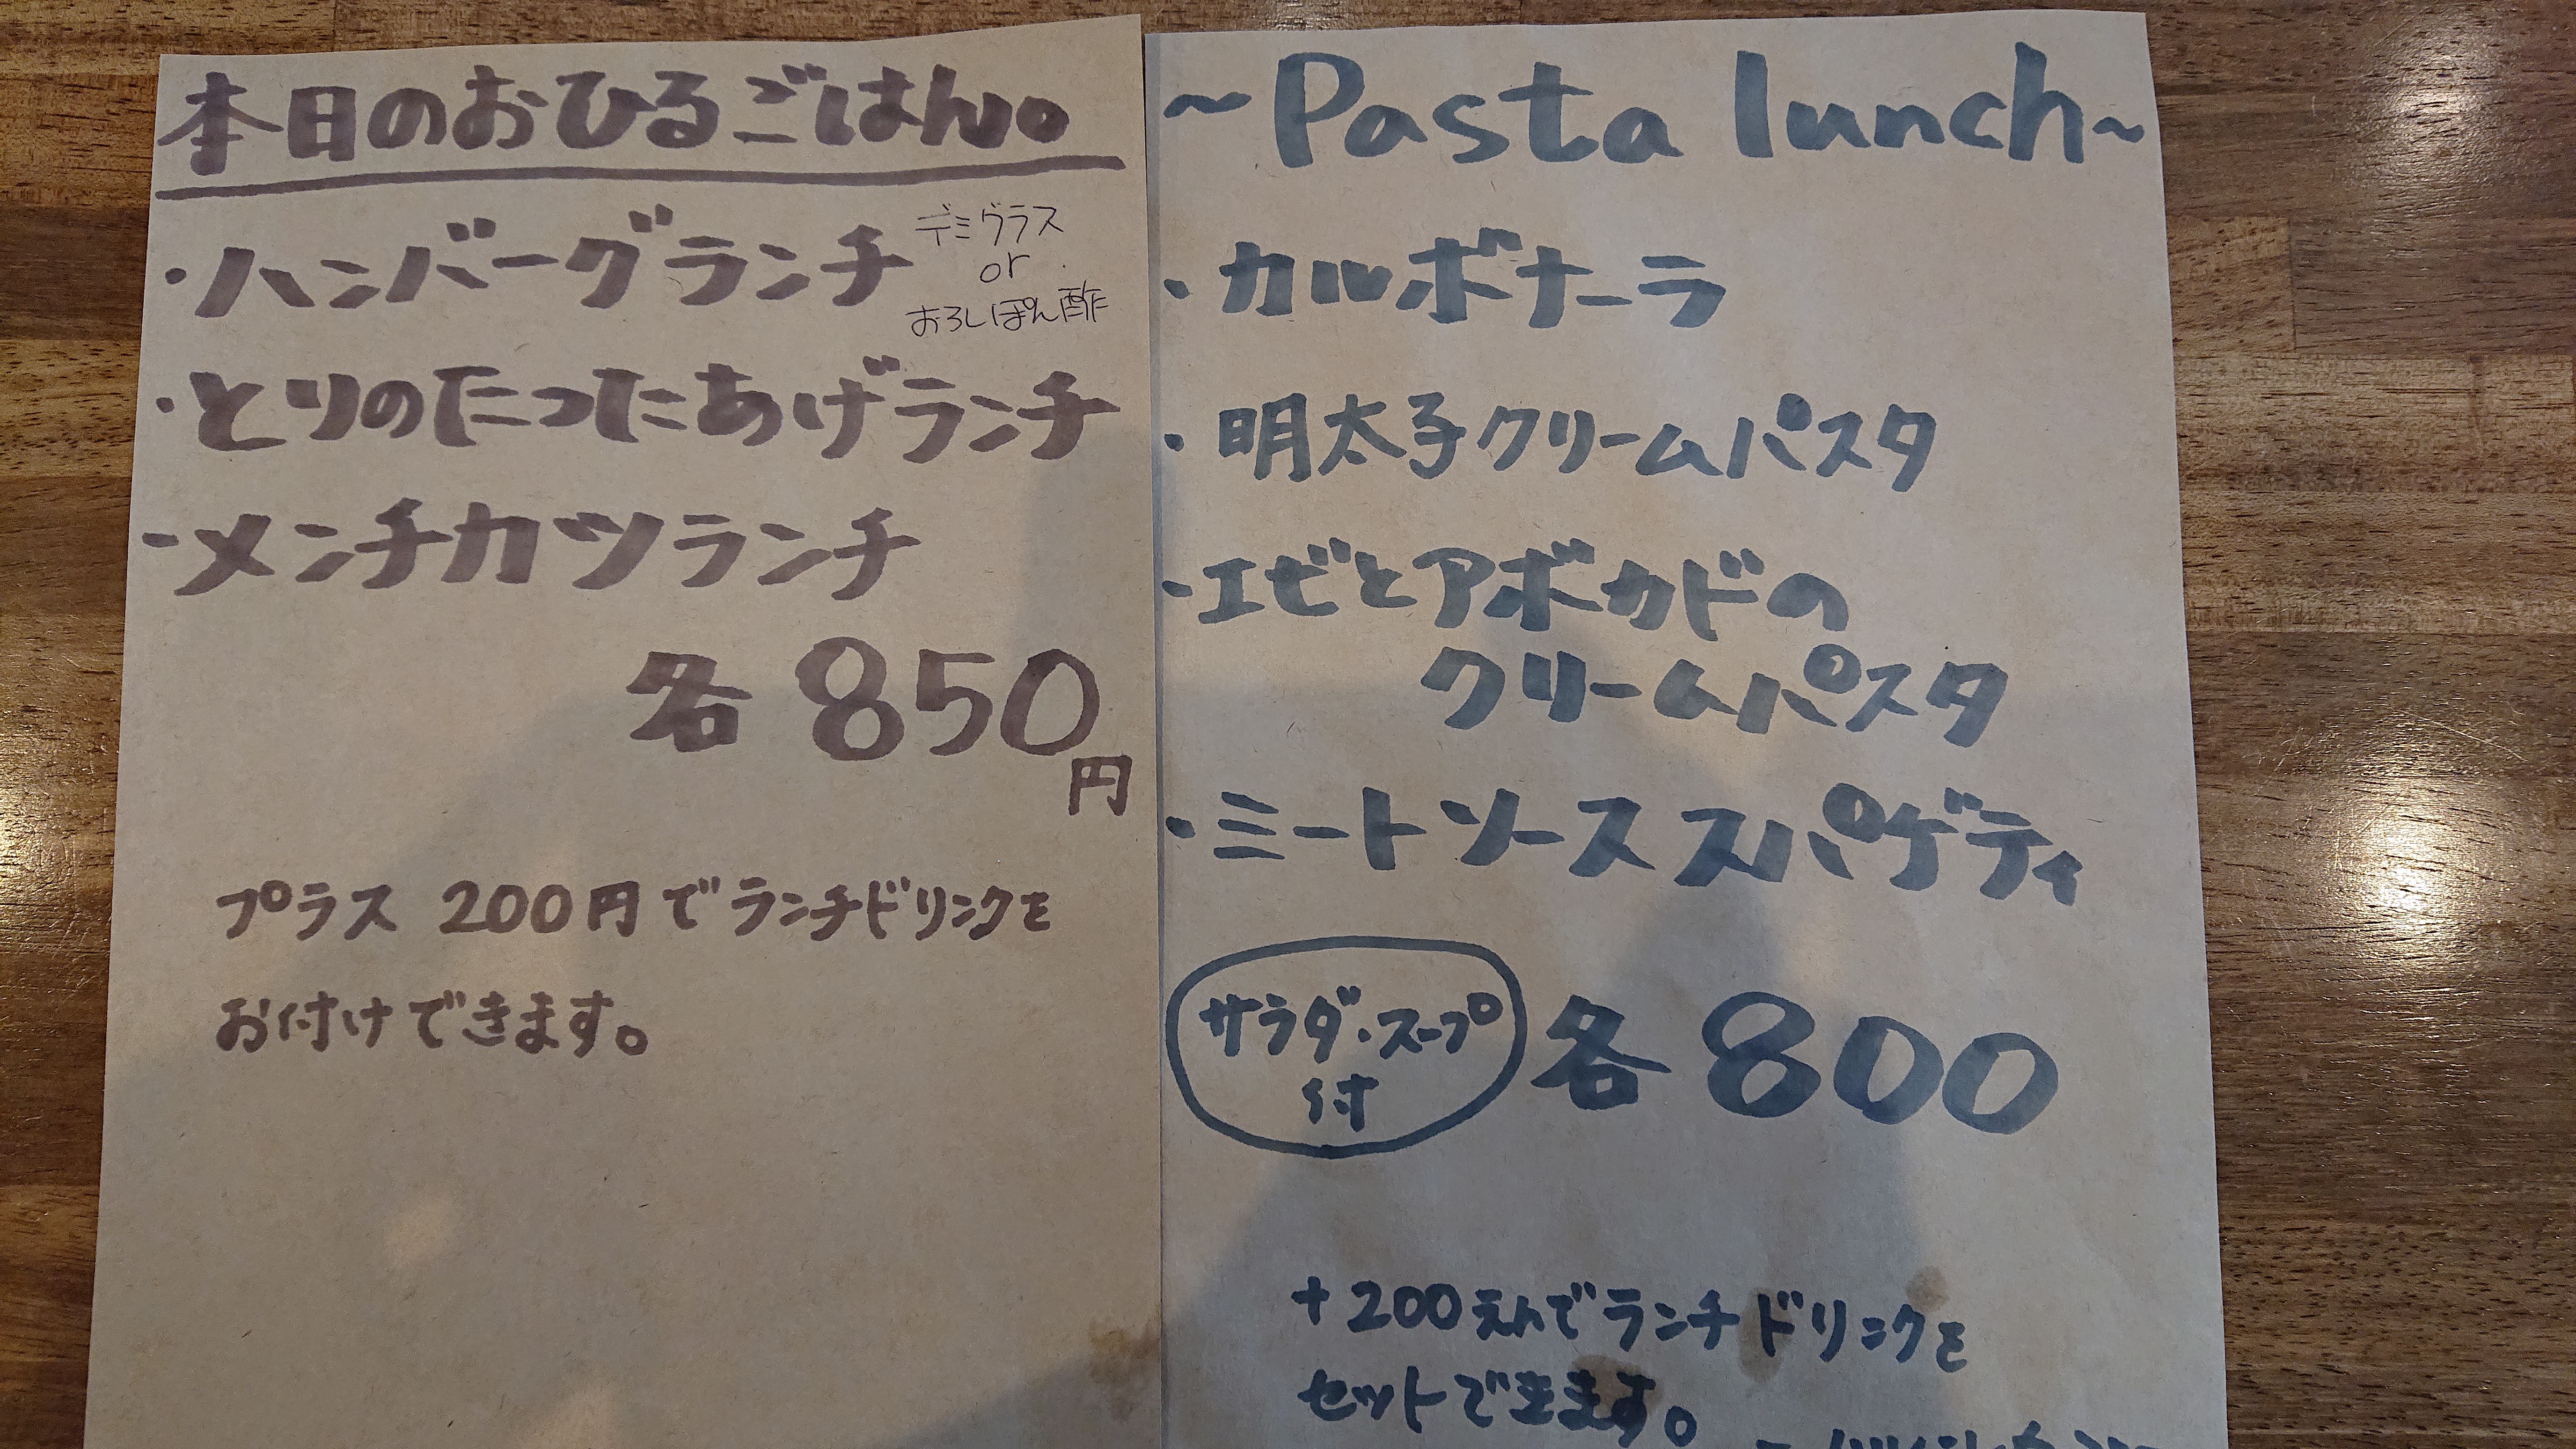 本日のおひるごはん。
・ハンバーグランチ
デミグラス
or
おろしぽん酢
・とりのたつたあげランチ
・メンチカツランチ
各850
円
プラス 200円でランチドリンクを
お付けできます。
~Pasta lunch~
・カルボナーラ
・明太子クリームパスタ
・エビとアボカドの
クリームパスタ
・ミートソーススパゲティ
サラダ・スープ
付
各800
+200えんでランチドリンクを
セットできます。